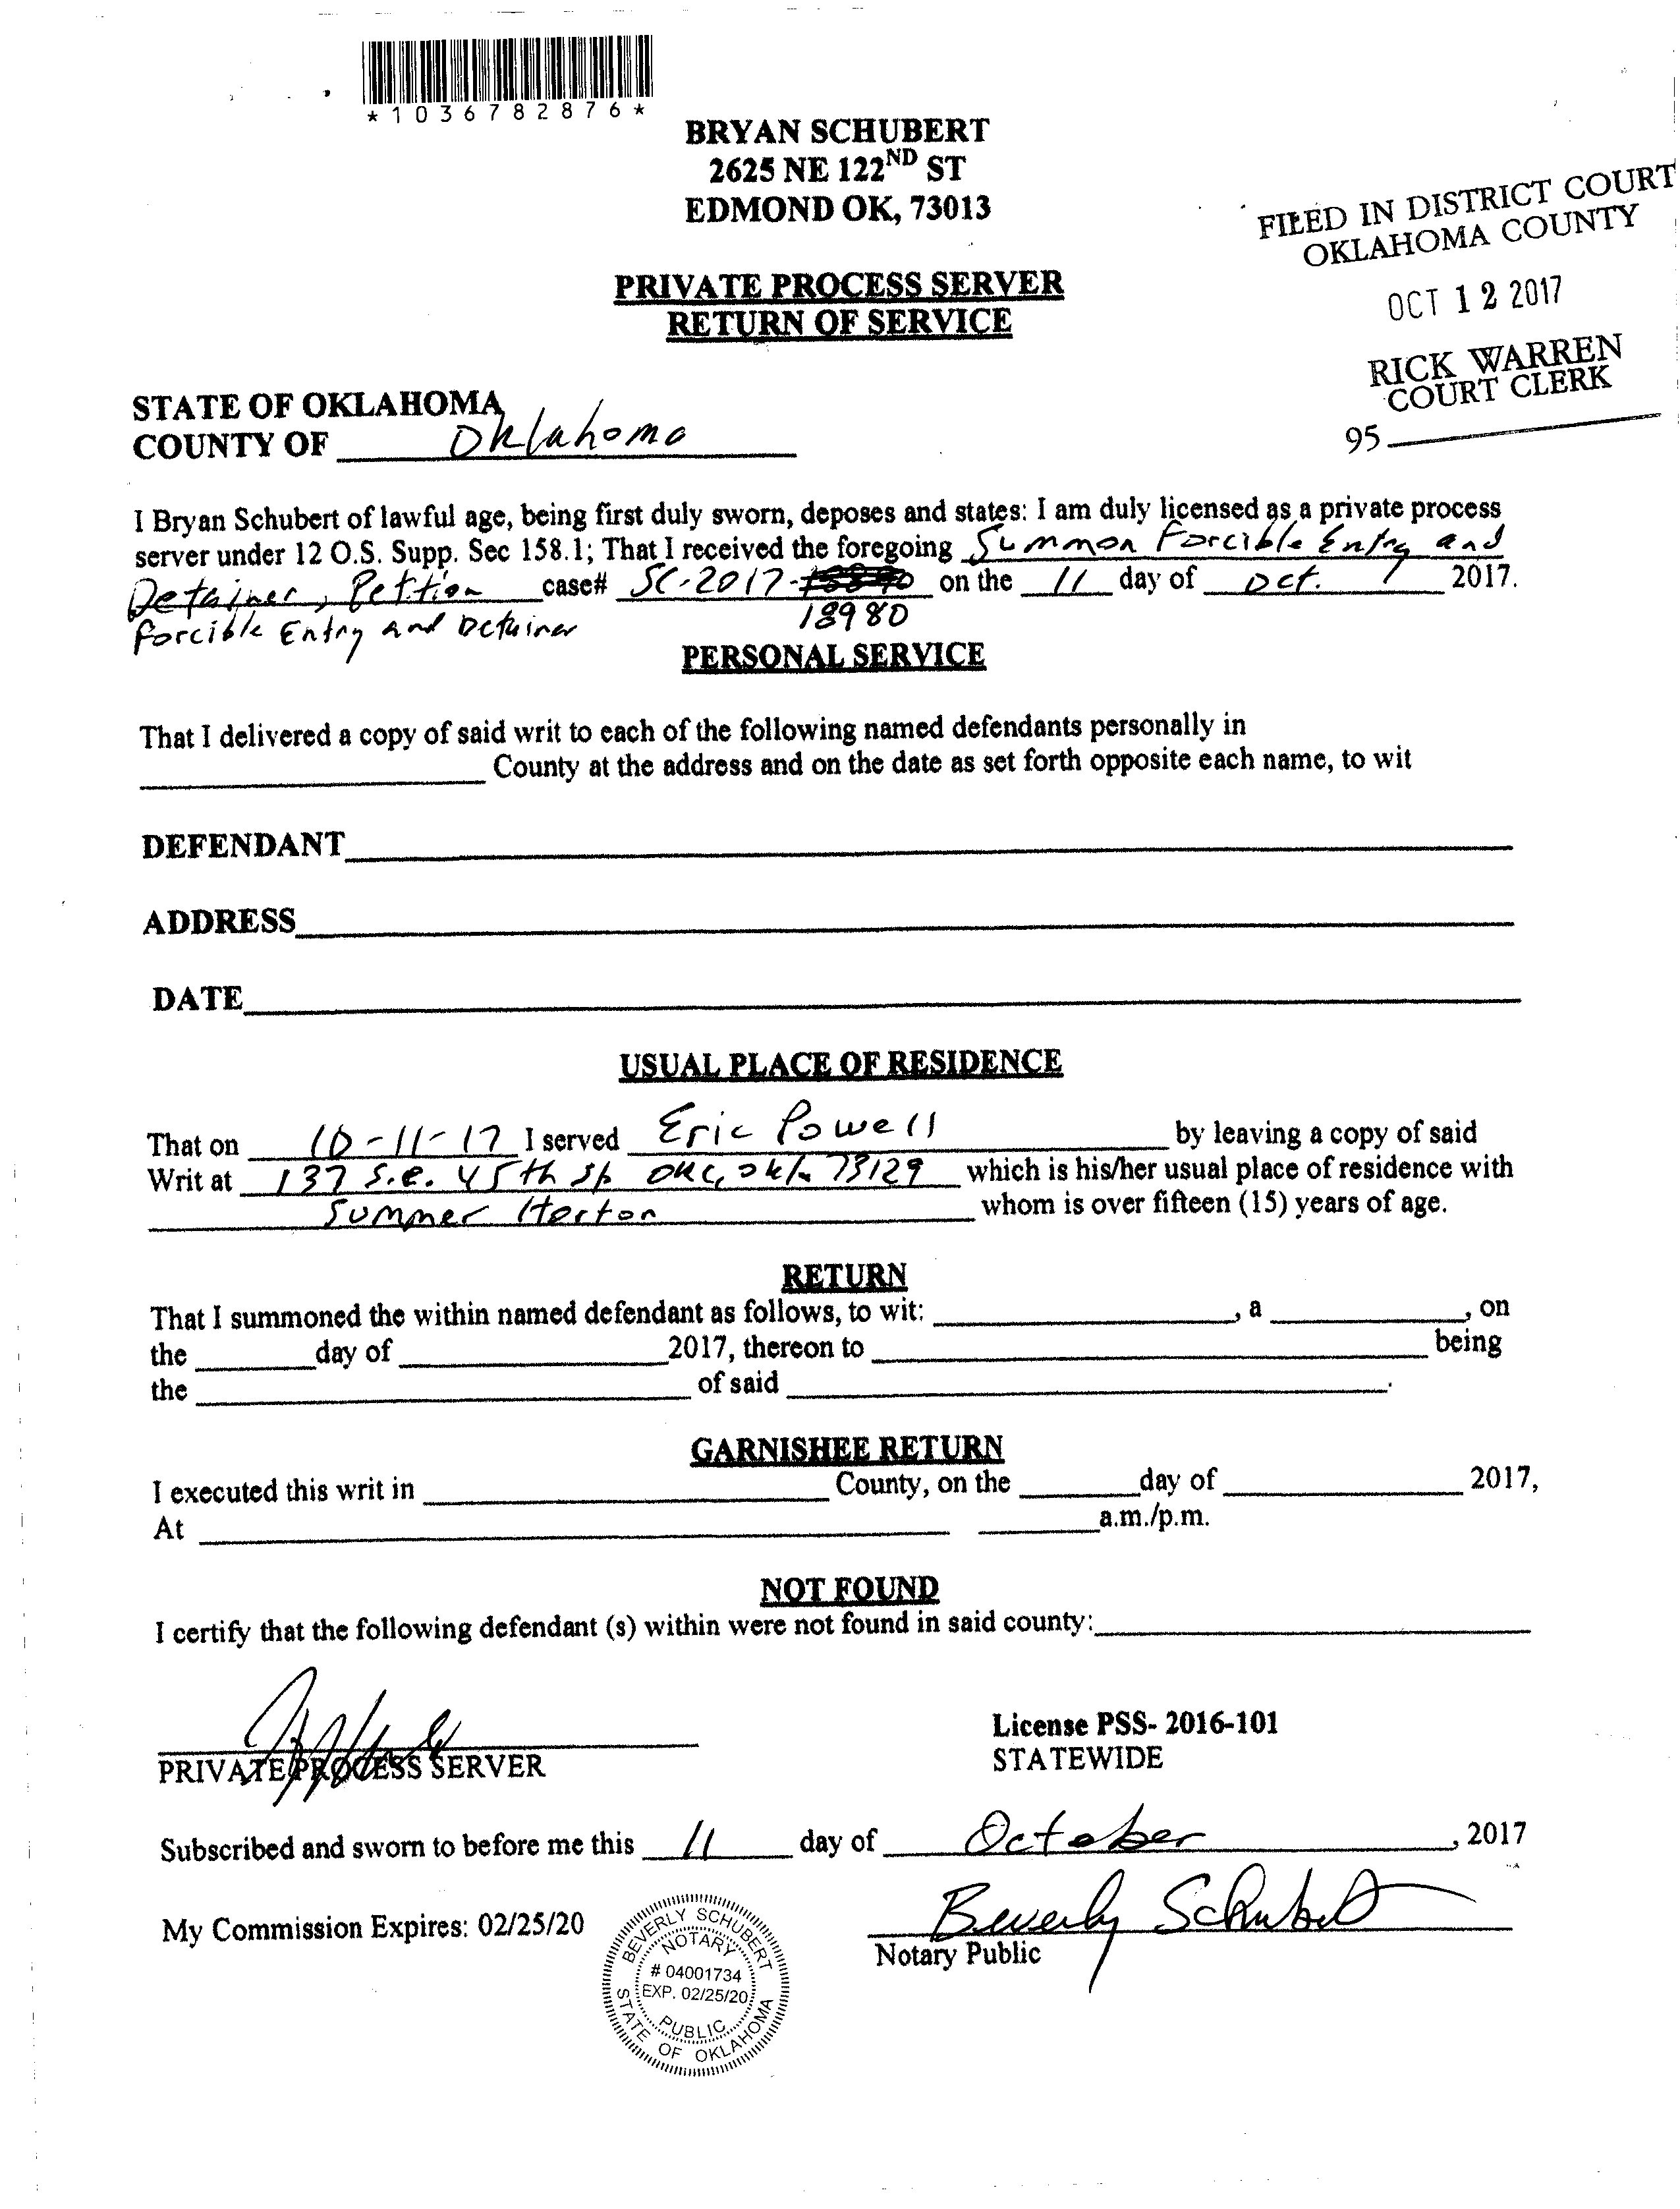 *1036782876*
BRYAN SCHUBERT
2625 NE 122ND ST
EDMOND OK, 73013
FILED IN DISTRICT COURT
OKLAHOMA COUNTY
OCT 12 2017
RICK WARREN
COURT CLERK
95
PRIVATE PROCESS SERVER
RETURN OF SERVICE
STATE OF OKLAHOMA
COUNTY OF Oklahoma
I Bryan Schubert of lawful age, being first duly sworn, deposes and states: I am duly licensed as a private process
server under 12 O.S. Supp. Sec 158.1; That I received the foregoing Summon Forcible Entry and
Detainer, Petition case# SC-2017- on the 11 day of Oct. 2017.
Forcible Entry and Detainer 18980
PERSONAL SERVICE
That I delivered a copy of said writ to each of the following named defendants personally in
County at the address and on the date as set forth opposite each name, to wit
DEFENDANT
ADDRESS
DATE
USUAL PLACE OF RESIDENCE
That on 10-11-17 I served Eric Powell by leaving a copy of said
Writ at 137 S.e. 45th St OKC, Okla 73129 which is his/her usual place of residence with
Summer Horton whom is over fifteen (15) years of age.
RETURN
That I summoned the within named defendant as follows, to wit: , a , on
the day of 2017, thereon to being
the of said .
GARNISHEE RETURN
I executed this writ in County, on the day of 2017,
At a.m./p.m.
NOT FOUND
I certify that the following defendant (s) within were not found in said county:
License PSS- 2016-101
PRIVATE PROCESS SERVER STATEWIDE
Subscribed and sworn to before me this 11 day of October , 2017
Beverly Schubert
My Commission Expires: 02/25/20
Notary Public
BEVERLY SCHUBERT
NOTARY
# 04001734
EXP. 02/25/20
PUBLIC
STATE OF OKLAHOMA